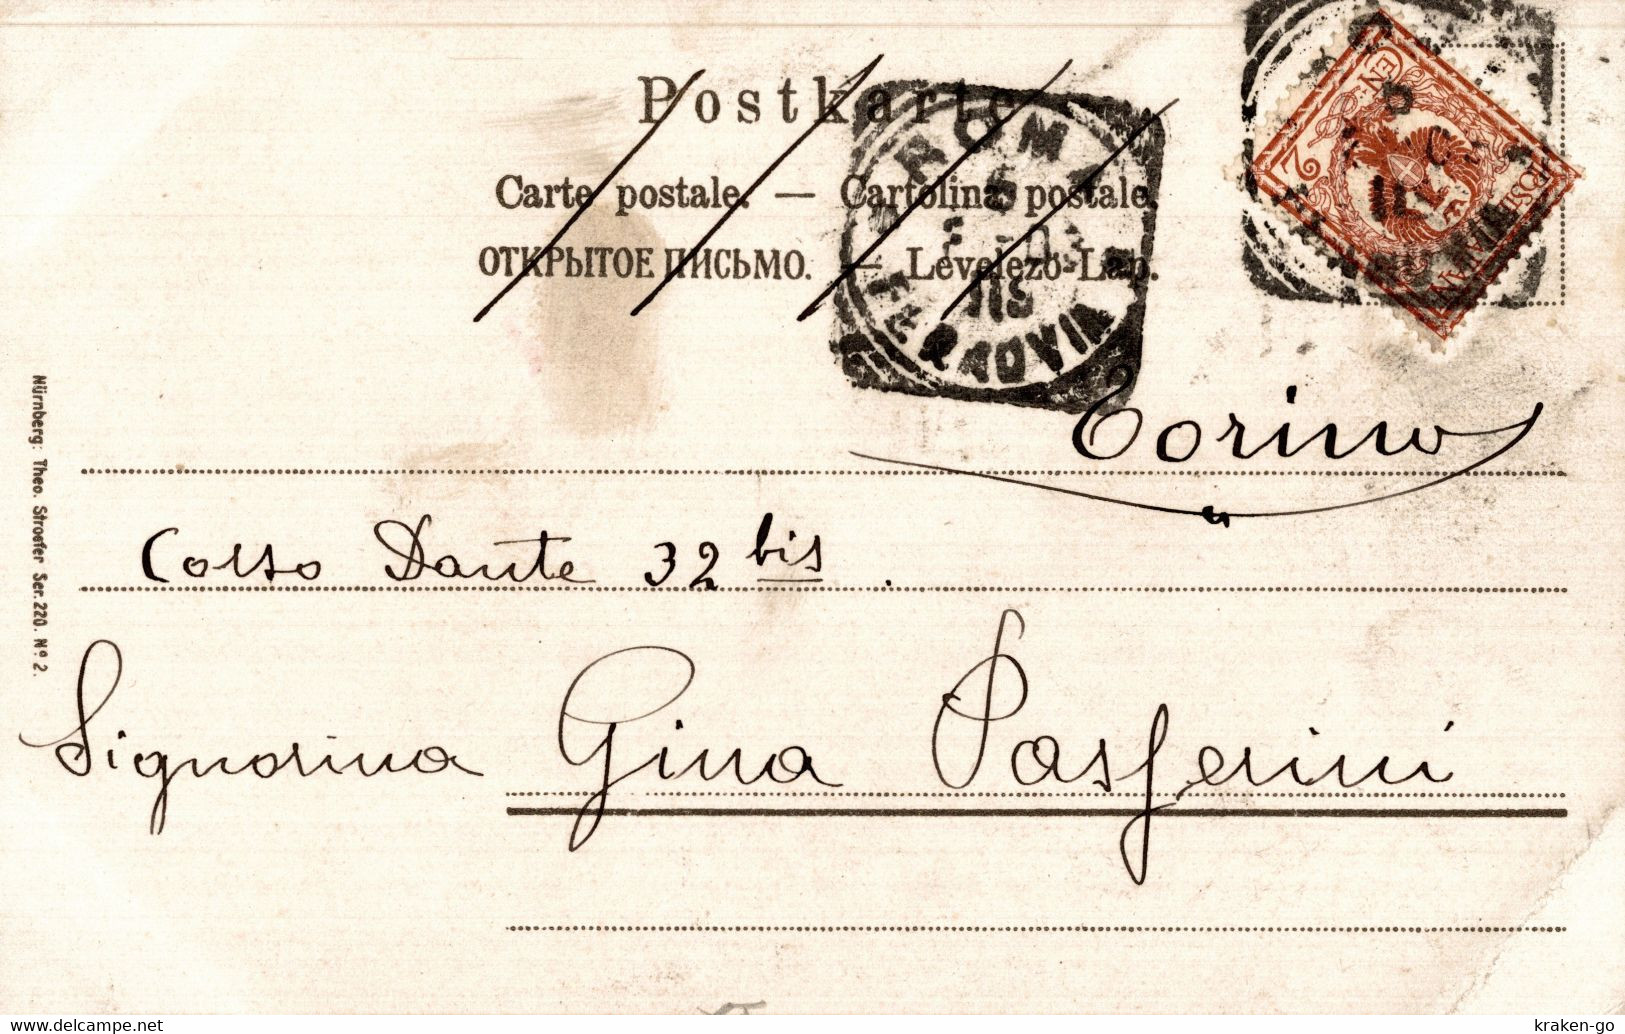 Postkarte
Carte postale. — Cartolina postale.
ОТКРЫТОЕ ПИСЬМО. — Levelezö-Lap.
ROMA
FERROVIA
Torino
Corso Dante 32 bis.
Signorina Gina Pasferini
Nürnberg: Theo. Stroefer Ser. 220. Nº 2.
kraken-go